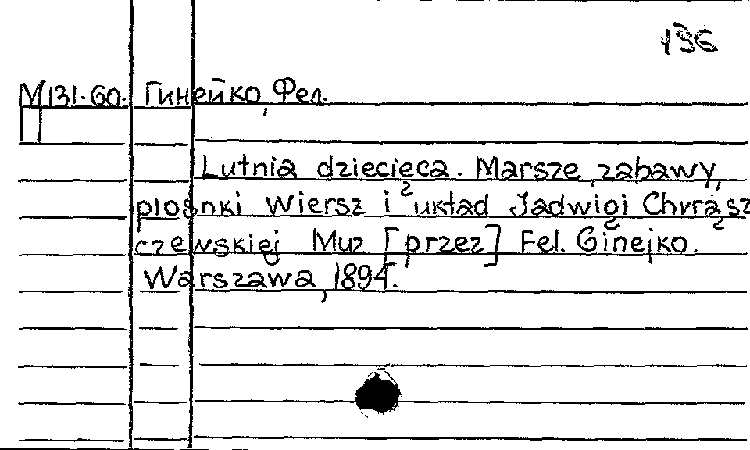 196
М131.60. Гинейко, Фел.
Lutnia dziecięca. Marsze, zabawy,
piosnki Wiersz i układ Jadwigi Chrząsz
czewskiej Muz [przez] Fel. Ginejko.
Warszawa, 1894.